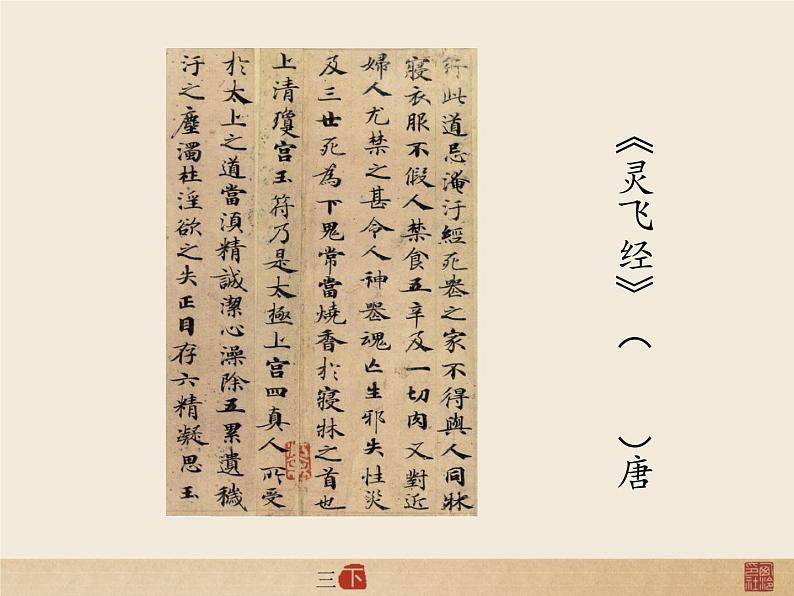 行此道忌淹汙經死喪之家不得與人同牀
寢衣服不假人禁食五辛及一切肉又對近
婦人尤禁之甚令人神喪魂亡生邪失性災
及三世死為下鬼常當燒香於寢牀之首也
上清瓊宫玉符乃是太極上宫四真人所受
於太上之道當湏精誠潔心澡除五累遺穢
汙之塵濁杜淫欲之失正目存六精凝思玉
《灵飞经》（　　）唐
三下